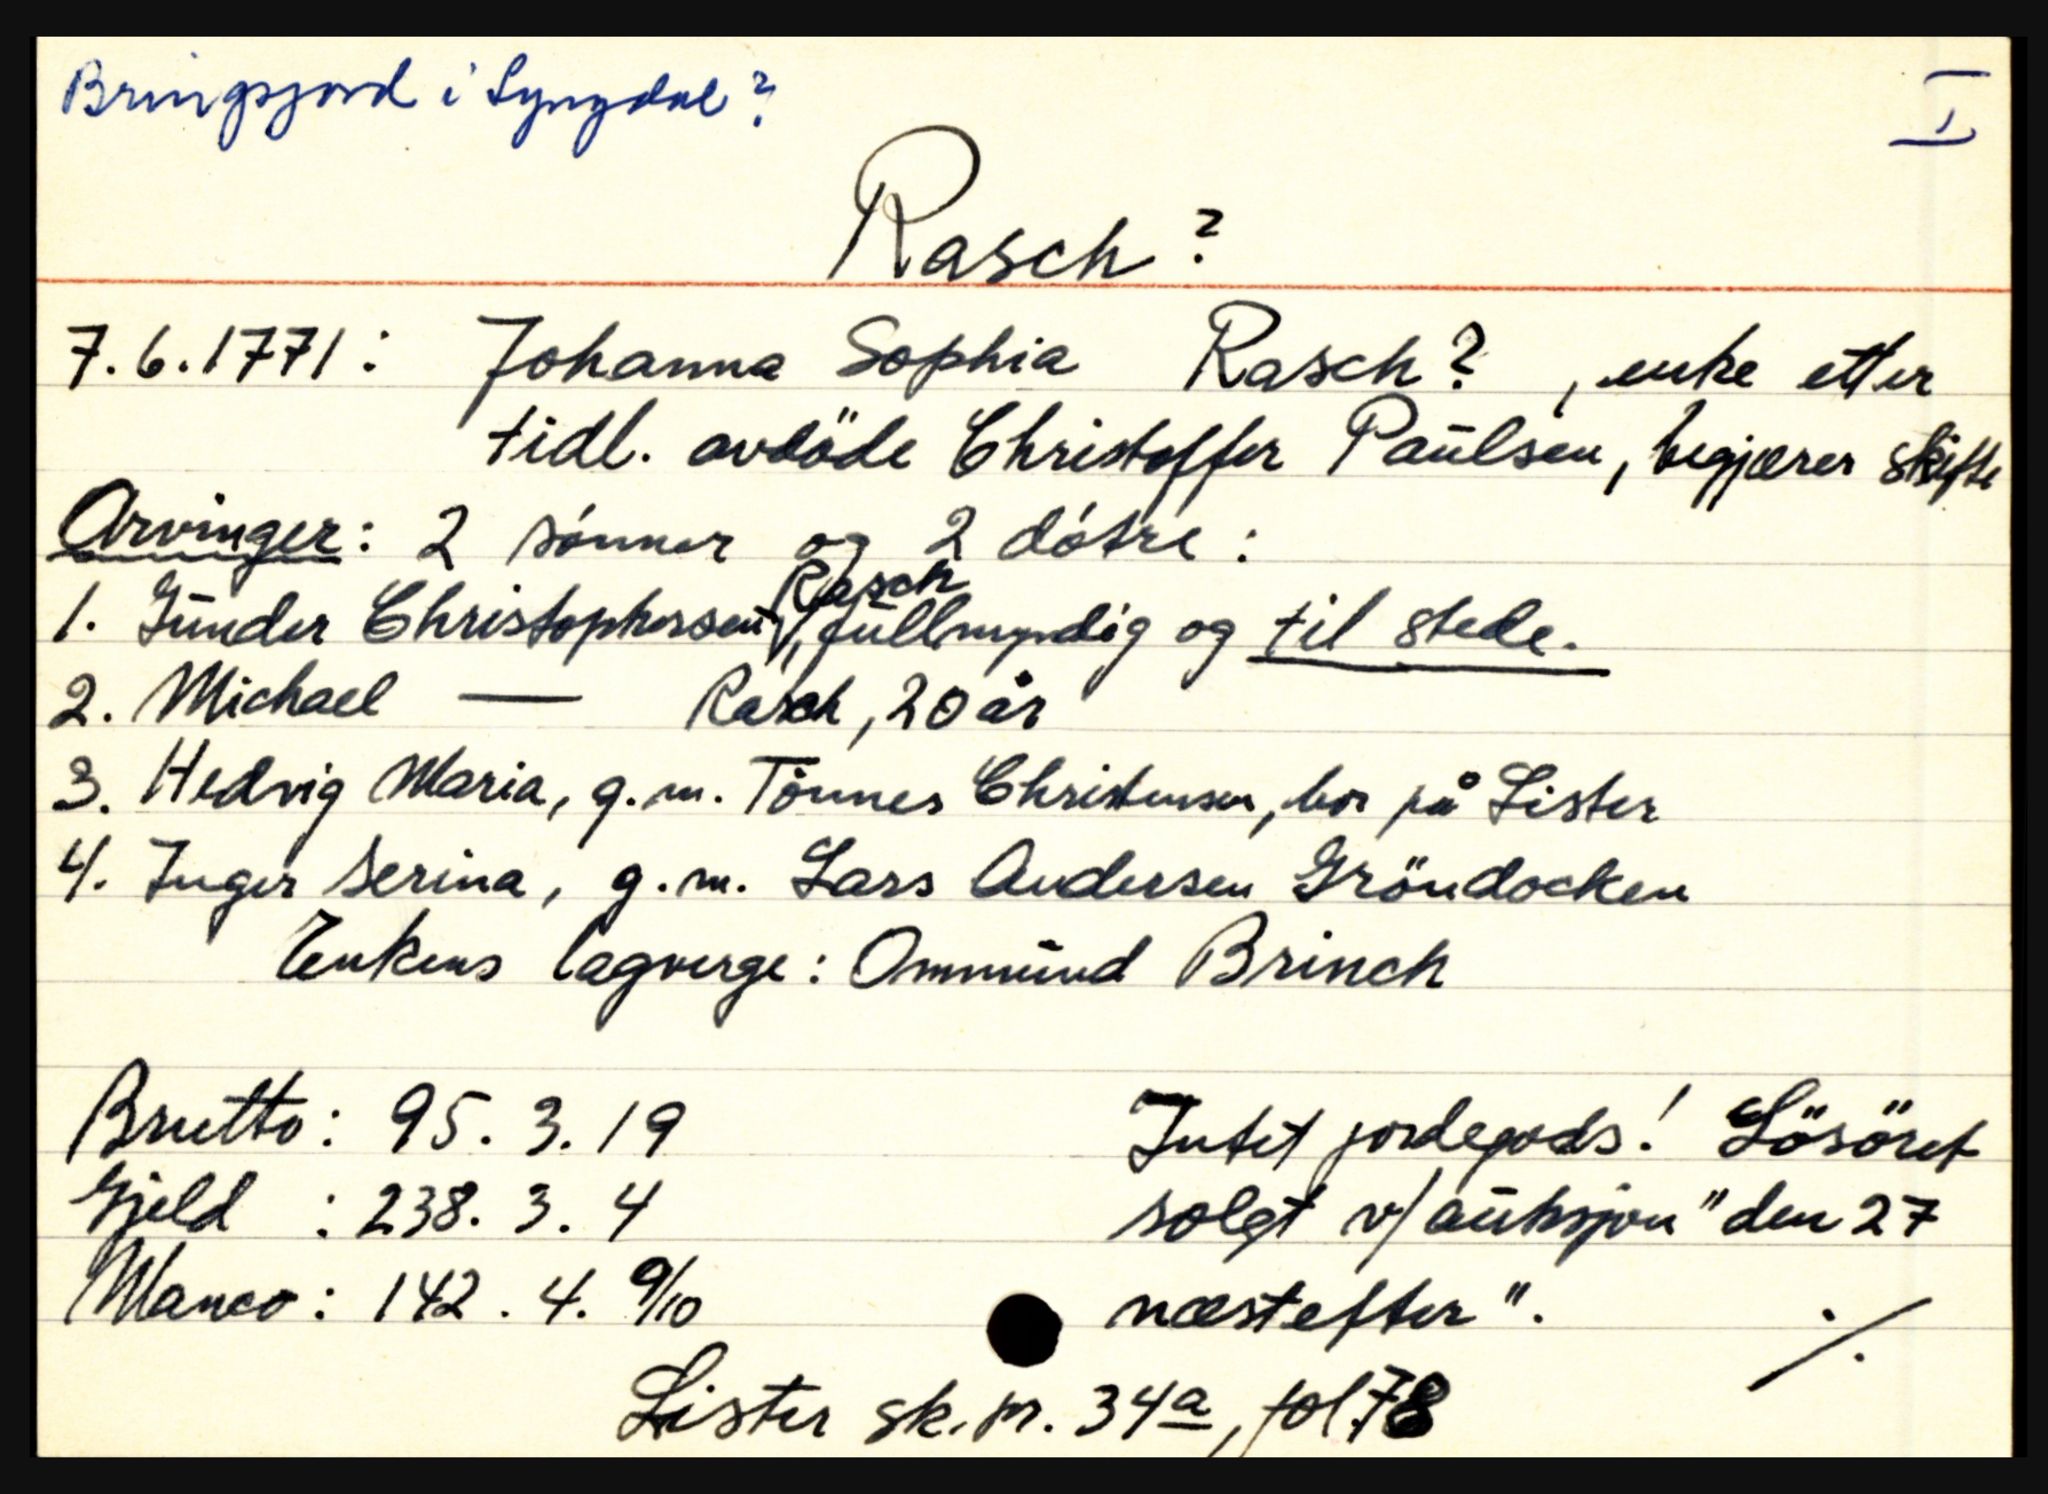 Bringsjord i Lyngdal?
I
Rasch?
7.6.1771: Johanna Sophia Rasch?, enke etter
tidl. avdöde Christoffer Paulsen, begjærer skifte
Arvinger: 2 sónner og 2 dótre:
Rasch
1. Gunder Christophersen √, fullmyndig og til stede.
2. Michael — Rasch, 20 år
3. Hedvig Maria, g.m. Tónnes Christensen, bor på Lister
4. Inger Serina, g.m. Lars Andersen Gröndocken
Enkens lagverge: Ommund Brinck
Brutto: 95. 3. 19
Gjeld : 238. 3. 4
Manco: 142. 4. 9/10
Intet jordegods! Lösöret
solgt v/auksjon "den 27
næstefter".
./.
Lister sk.pr. 34a, fol.78